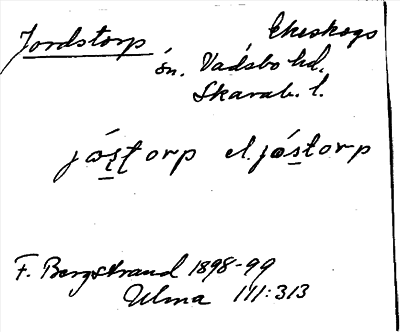 Jordstorp Ekeskogs
sn. Vadsbo hd.
Skarab. l.
jo̱s̱torp el. jós̱torp
F. Bergstrand 1898-99
Ulma 111:313